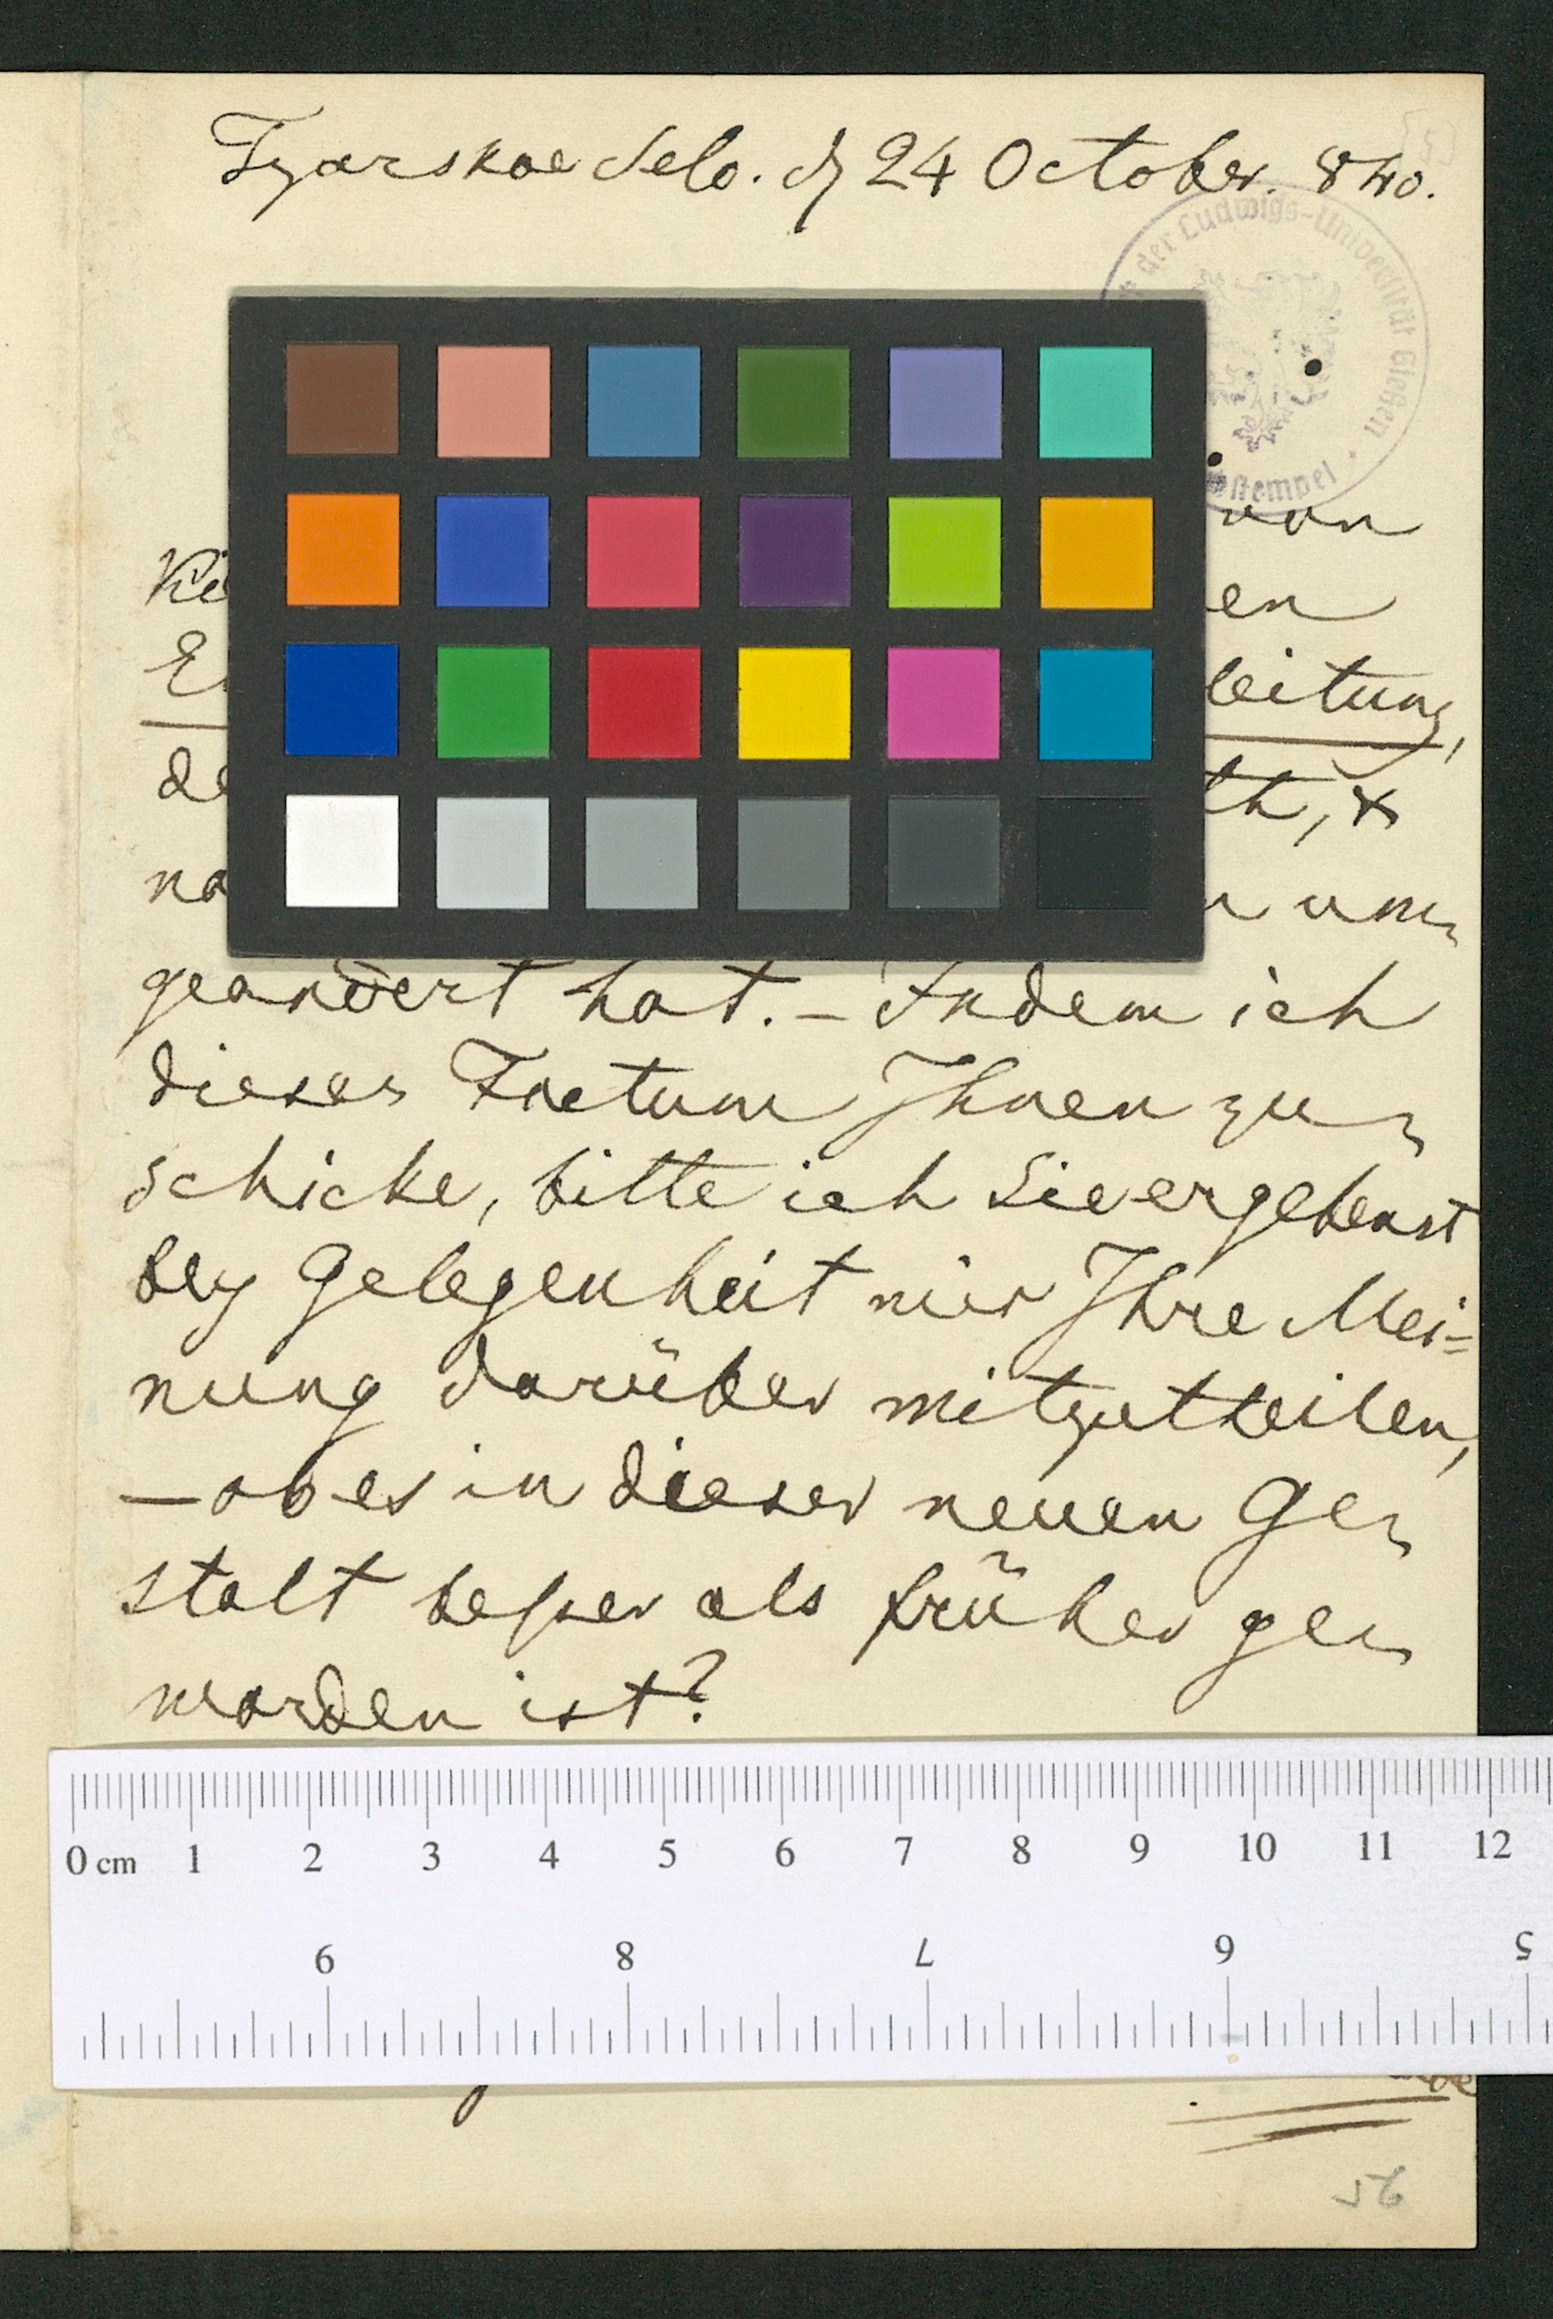 Tzarskoe Selo. d 24 October. 840.
der Ludwigs-Universität Gießen
stempel
von
en
leitung,
de
th, &
na
um-
geandert hat. - Indem ich
dieses Factum Ihnen zu-
schicke, bitte ich Sie ergebenst
bey Gelegenheit mir Ihre Mei=
nung darüber mitzutheilen,
- ob es in dieser neuen Ge-
stalt beßer als früher ge-
worden ist?
0 cm 1 2 3 4 5 6 7 8 9 10 11 12
9 8 7 6 5
56